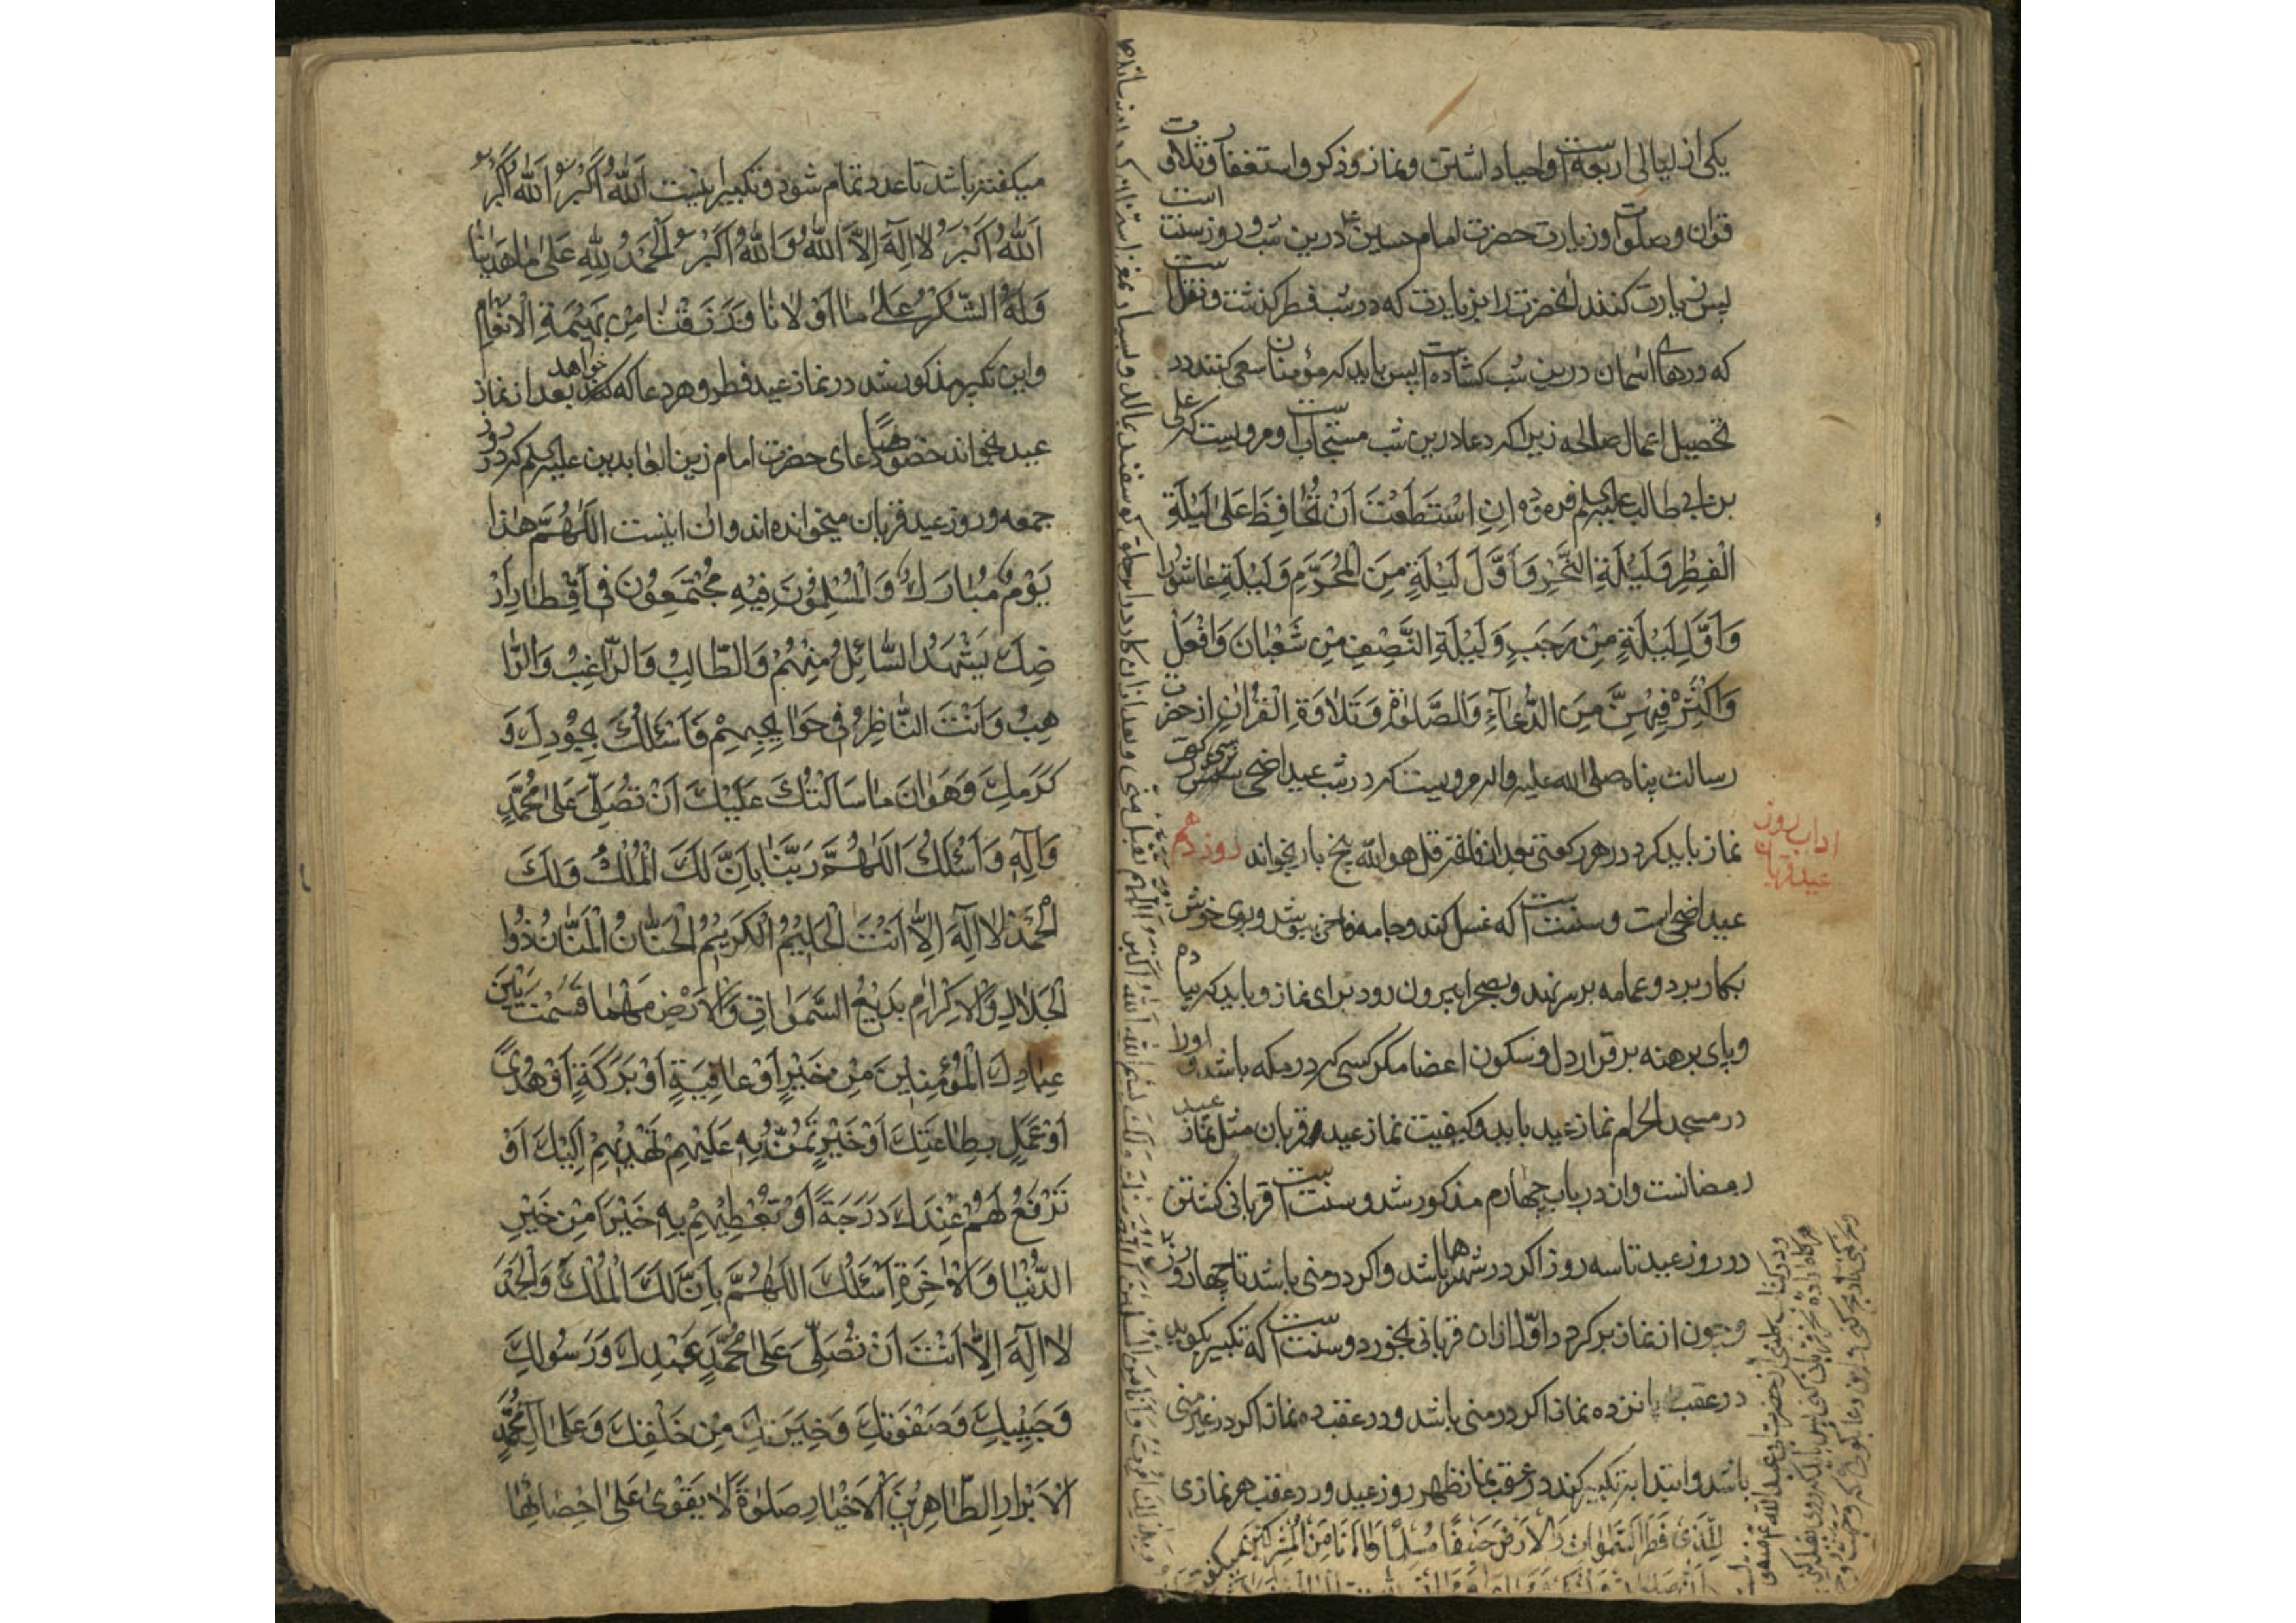 یکی از لیالی اربعه است و احیا داشتن و نماز و ذکر و استغفار و تلاوت
قرآن و صلوات و زیارت حضرت امام حسین ع درین شب و روز سنت است
پس زیارت کنند انحضرت را بزیارت که در شب فطر گذشت و نقلست
که درهای اسمان درین شب کشاده است پس باید که مؤمنان سعی کنند در
تحصیل اعمال صالحه زیرا که دعا درین شب مستجابست و مرویست که علی
بن ابی طالب علیه السلم فرموده ان اِسْتَطَعْتَ اَنْ تُحٰافِظَ عَلىٰ لَيْلَةِ
الْفِطْرِ وَلَيْلَةِ النَّحْرِ وَاَوَّلَ لَيْلَةٍ مِنَ الْمُحَرَّمِ وَلَيْلَةِ عٰاشُورٰا
وَاَوَّلِ لَيْلَةٍ مِنْ رَجَبٍ وَلَيْلَةِ النِّصْفِ مِنْ شَعْبٰانَ فَافْعَلْ
وَاَكْثِرْ فِيهِنَّ مِنَ الدُّعٰآءِ وَالصَّلوٰةِ وَتَلاٰوَةِ الْقُرْاٰنِ از حضرت
رسالت پناه صلی الله علیه واله مرویست که در شب عید اضحی شش رکعت
نماز باید کرد در هر رکعتی بعد از فاتحه قل هو الله پنج بار بخواند روز دهم
اداب روز
عید قربان
عید اضحی است و سنتست که غسل کند و جامه فاخر بپوشد و بوی خوش
بکار برد و عمامه بر سر نهد و بصحرا بیرون رود برای نماز و باید که پیاده
و پای برهنه برقرار دل و سکون اعضا مگر کسی که در مکه باشد او را
در مسجد الحرام نماز عید باید و کیفیت نماز عید قربان مثل نماز عید
رمضانست وان در باب چهارم مذکور شد و سنتست قربانی کشتن
در روز عید تا سه روز اکر در شهرها باشد و اکر در منی باشد تا چهار روز
و چون از نماز برکردد اوّل ازان قربانی بخورد و سنتست که تکبیر بکوید
در عقب پانزده نماز اکر در منی باشد و در عقب ده نماز اکر در غیر منی
باشد و ابتدا به تکبیر کند در عقب نماز ظهر روز عید و در عقب هر نمازی
لِلَّذی فَطَرَ السَّمٰوٰاتِ وَالاَرْضَ حَنیفًا مُسْلِمًا وَمٰا اَنَا مِنَ الْمُشْرِکینَ
میکفته باشد تا عدد تمام شود و تکبیر اینست اَللّٰهُ اَكْبَرُ اَللّٰهُ اَكْبَرُ
اَللّٰهُ اَكْبَرُ لاٰ اِلٰهَ اِلاَّ اللّٰهُ وَاللّٰهُ اَكْبَرُ اَلْحَمْدُ لِلّٰهِ عَلىٰ مٰا هَدٰينٰا
وَلَهُ الشُّكْرُ عَلىٰ مٰا اَوْلاٰنٰا وَرَزَقَنٰا مِنْ بَهِيْمَةِ الْاَنْعٰامِ
واین تکبیر مذکور شد در نماز عید فطر و هر دعا که خواهد بعد از نماز
عید بخواند خصوصًا دعای حضرت امام زین العابدین علیه السلم که در روز
جمعه و روز عید قربان میخوانده اند وان اینست اَللّٰهُمَّ هٰذٰا
يَوْمٌ مُبٰارَكٌ وَالْمُسْلِمُوْنَ فِيْهِ مُجْتَمِعُوْنَ فِيْ اَقْطٰارِ اَرْ
ضِكَ يَشْهَدُ السّٰائِلُ مِنْهُمْ وَالطّٰالِبُ وَالرّٰاغِبُ وَالرّٰا
هِبُ وَاَنْتَ النّٰاظِرُ فِيْ حَوٰائِجِهِمْ فَاَسْئَلُكَ بِجُوْدِكَ وَ
كَرَمِكَ وَهَوٰانَ مٰا سَاَلْتُكَ عَلَيْكَ اَنْ تُصَلِّيَ عَلىٰ مُحَمَّدٍ
وَاٰلِهِ وَاَسْئَلُكَ اَللّٰهُمَّ رَبَّنٰا بِاَنَّ لَكَ الْمُلْكَ وَلَكَ
الْحَمْدَ لاٰ اِلٰهَ اِلاّٰ اَنْتَ الْحَلِيْمُ الْكَرِيْمُ الْحَنّٰانُ الْمَنّٰانُ ذُوا
الْجَلاٰلِ وَالْاِكْرٰامِ بَدِيْعُ السَّمٰوٰاتِ وَالْاَرْضِ مَهْمٰا قَسَمْتَ بَيْنَ
عِبٰادِكَ الْمُؤْمِنِيْنَ مِنْ خَيْرٍ اَوْ عٰافِيَةٍ اَوْ بَرَكَةٍ اَوْ هُدًى
اَوْ عَمَلٍ بِطٰاعَتِكَ اَوْ خَيْرٍ تَمُنُّ بِهِ عَلَيْهِمْ تَهْدِيْهِمْ اِلَيْكَ اَوْ
تَرْفَعُ لَهُمْ عِنْدَكَ دَرَجَةً اَوْ تُعْطِيْهِمْ بِهِ خَيْرًا مِنْ خَيْرِ
الدُّنْيٰا وَالْاٰخِرَةِ اَسْئَلُكَ اللّٰهُمَّ بِاَنَّ لَكَ الْمُلْكَ وَالْحَمْدَ
لاٰ اِلٰهَ اِلاّٰ اَنْتَ اَنْ تُصَلِّيَ عَلىٰ مُحَمَّدٍ عَبْدِكَ وَرَسُوْلِكَ
وَحَبِيْبِكَ وَصَفْوَتِكَ وَخِيَرَتِكَ مِنْ خَلْقِكَ وَعَلىٰ اٰلِ مُحَمَّدٍ
الْاَبْرٰارِ الطّٰاهِرِيْنَ الْاَخْيٰارِ صَلوٰةً لاٰ يَقْوىٰ عَلىٰ اِحْصٰائِهٰا